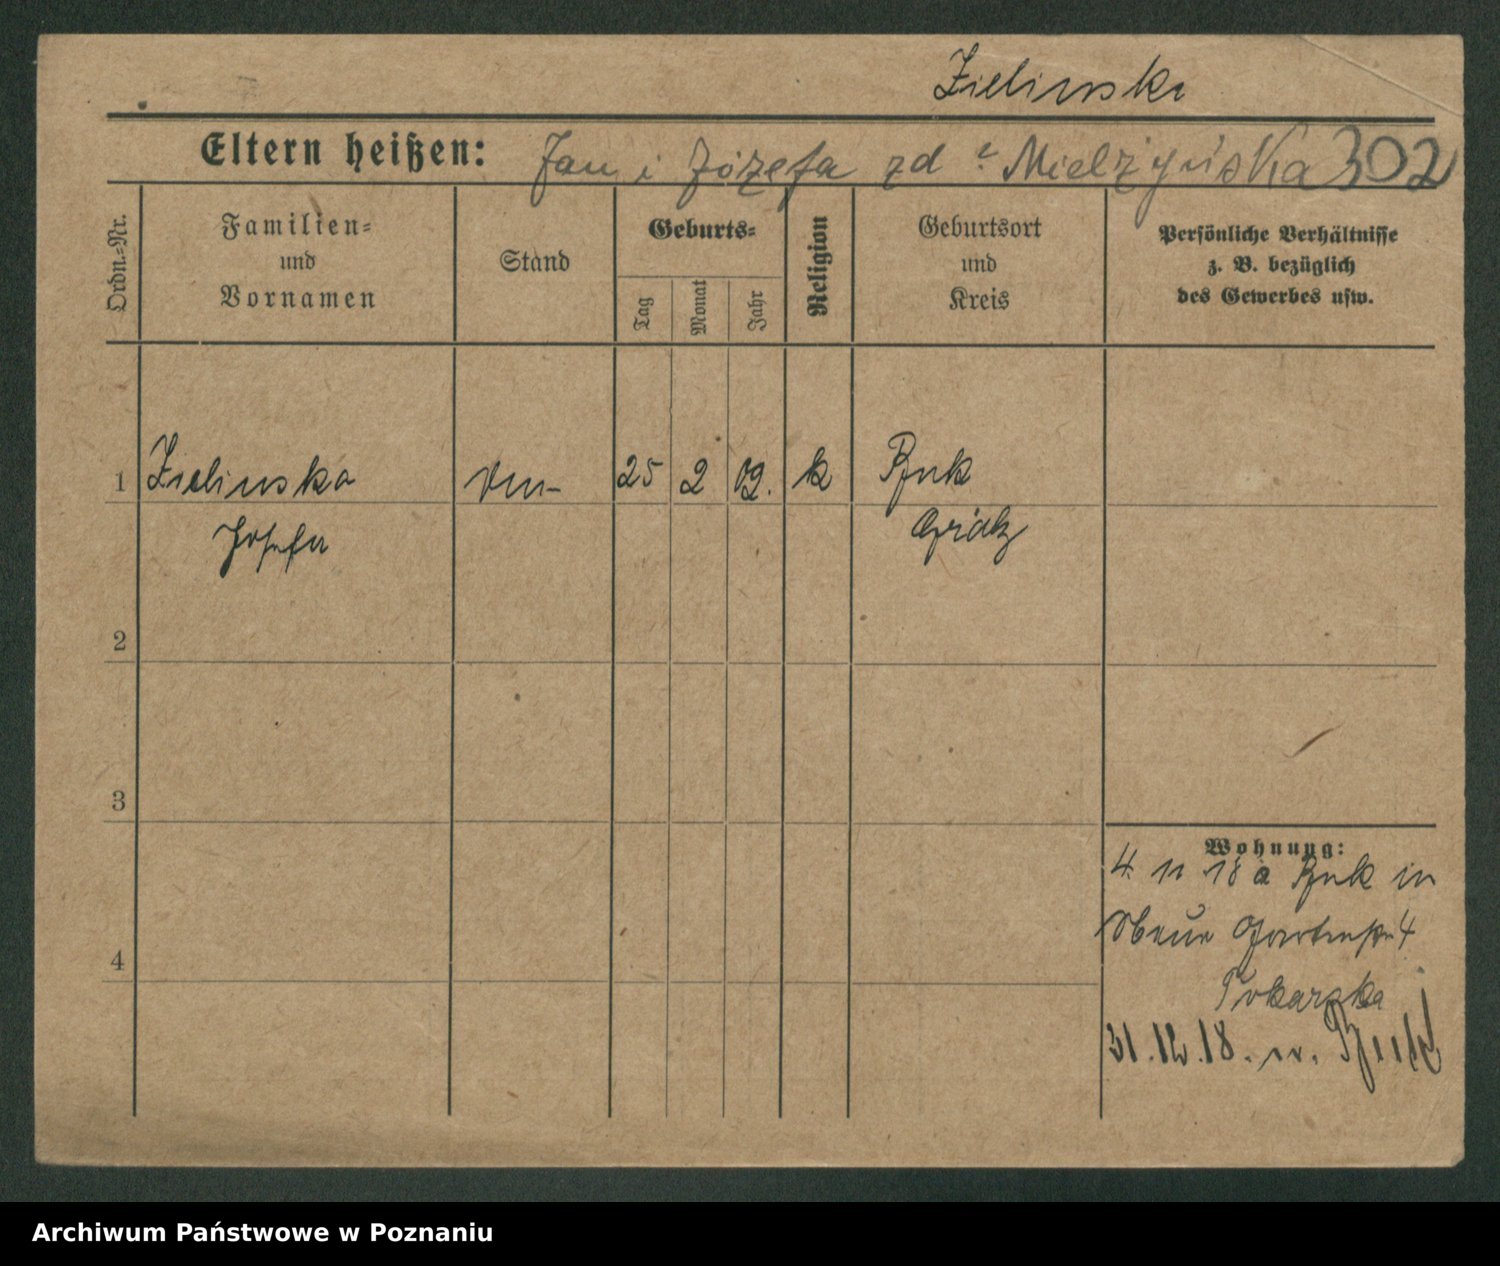 Zielinska
Eltern heißen: Jan i Józefa zd ? Mielzyńska 302
Ordn.=Nr.
Familien=
und
Vornamen
Stand
Geburts=
Tag
Monat
Jahr
Religion
Geburtsort
und
Kreis
Persönliche Verhältnisse
z. B. bezüglich
des Gewerbes usw.
1 Zielinska 25 2 09. k Buk
Josefa Grätz
2
3
4
Wohnung:
4 11 18 a Buk in
Neue Gartenstr 4
31.12.18. n. Buk
Archiwum Państwowe w Poznaniu